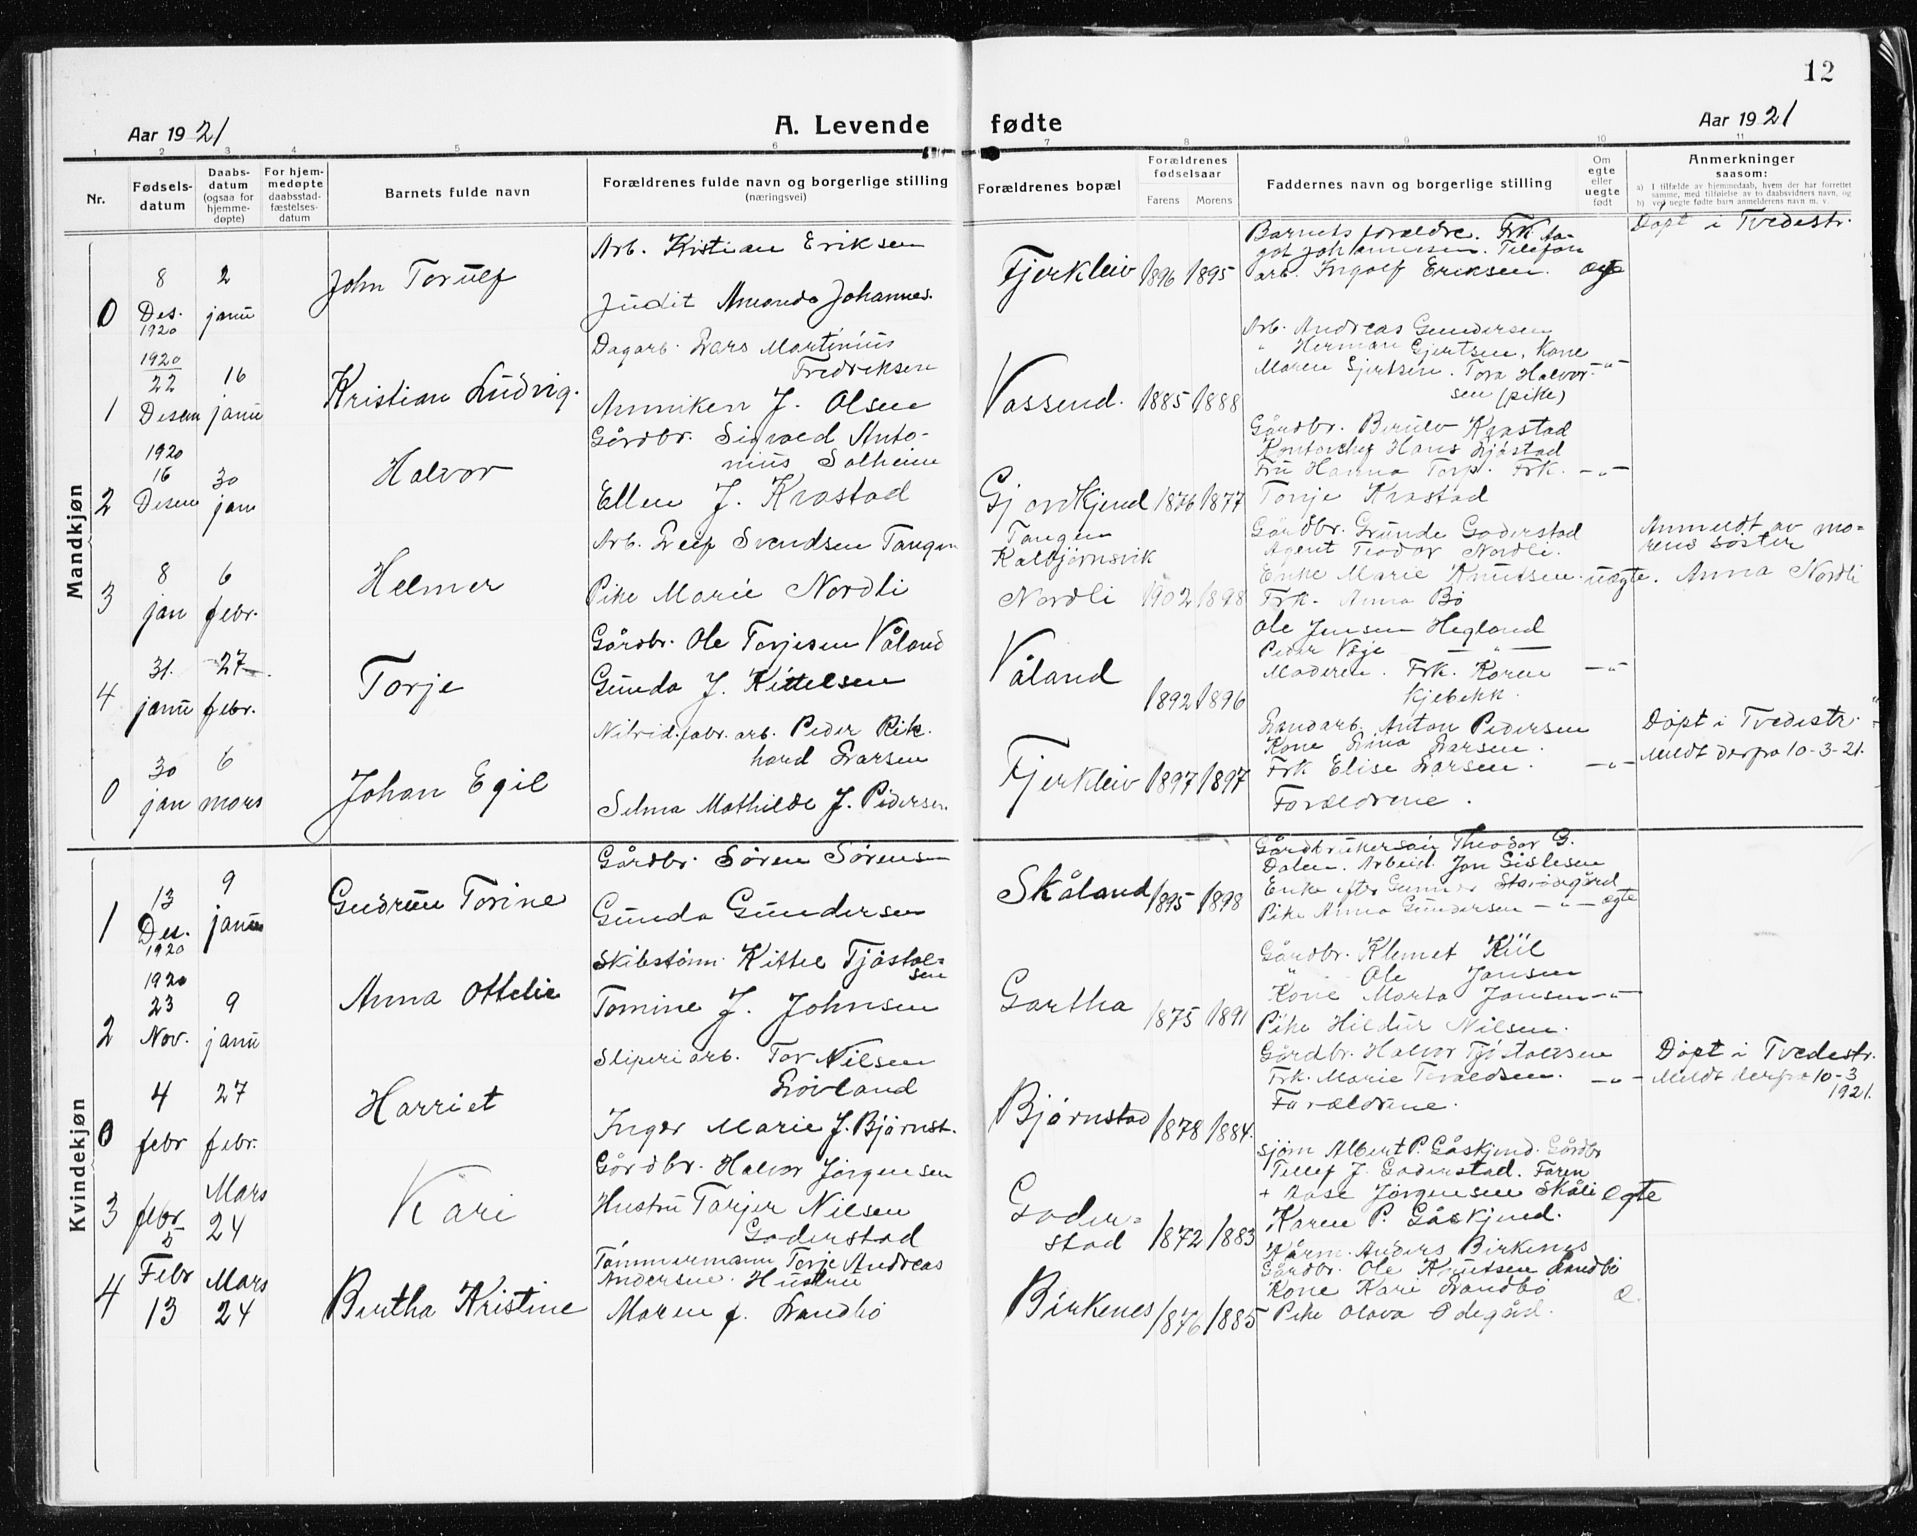 12
Aar 1921
A. Levende fødte
Aar 1921
1 2 3 4 5 6 7 8 9 10 11
Nr.
Fødsels-
datum
Daabs-
datum
(ogsaa for
hjemme-
døpte)
For hjem-
medøpte
daabsstad-
fæstelses-
datum
Barnets fulde navn
Forældrenes fulde navn og borgerlige stilling
(næringsvei)
Forældrenes bopæl
Forældrenes
fødselsaar
Farens Morens
Faddernes navn og borgerlige stilling
Om
egte
eller
uegte
født
Anmerkninger
saasom:
a) I tilfælde av hjemmedaab, hvem der har forrettet
samme, med tilføielse av to daabsvidners navn, og
b) ved uegte fødte barn anmelderens navn m. v.
Mandkjøn
0
8
Des.
1920
2
janu
John Torulf
Arb. Kristian Eriksen
Judit Amanda Johannes.
Fjerkleiv
1896 1895
Barnets foreldre. Frk. Aa-
got Johannesen. Telefon
arb. Ingolf Eriksen.
egte
Døpt i Tvedestr.
1
1920
22
Desem
16
janu
Kristian Ludvig.
Dagarb. Lars Martinius
Fredriksen
Anniken J. Olsen
Vassend.
1885 1888
Arb. Andreas Gundersen
" Herman Gjertsen, Kone
Maren Gjertsen. Tora Halvor-
sen (pike)
-"-
2
1920
16
Desem
30
jan
Halvor
Gårdbr. Sigvald Anto-
nius Solheim
Ellen J. Krastad
Gjovkjend
1876 1877
Gårdbr. Berulv Krastad
Kontorchef Hans Sjåstad
Fru Hanna Torp. Frk.
Tonje Krastad
-"-
3
8
jan
6
febr.
Helmer
Arb. Leif Svendsen Tangen
Pike Marie Nordli
Tangen
Kalbjørnsvik
Nordli
1902 1898
Gårdbr. Grunde Goderstad
Agent Teodor Nordli.
Enke Marie Knutsen.
Frk. Anna Bø
uegte.
Anmeldt av mo-
rens søster
Anna Nordli
4
31.
janu
27
febr.
Torje
Gårdbr. Ole Torjesen Våland
Gunda J. Kittelsen
Våland
1892 1896
Ole Jensen Hegland
Peder Veje — " —
Moderen. Frk. Karen
Kjebekk.
-"-
0
30
jan
6
mars
Johan Egil
Nitrid.fabr. arb. Peder Rik-
hard Larsen
Selma Mathilde J. Pedersen.
Fjerkleiv
1897 1897
Landarb. Anton Pedersen
Kone Lina Larsen.
Frk Elise Larsen.
Forældrene.
-"-
Døpt i Tvedestr.
Meldt derfra 10-3-21.
Kvindekjøn
1
13
Des.
1920
9
janu
Gudrun Torine
Gårdbr. Søren Sørensen
Gunda Gundersen
Skåland
1895 1898
Gårdbrukersøn Theodor G.
Dalen. Arbeid. Jon Gislesen
Enke efter Gunner Skarvegård
Pike Anna Gundersen - " -
egte
2
1920
23
Nov.
9
janu
Anna Ottelie
Skibstømm. Kittel Tjøstol-
sen
Tomine J. Johnsen
Gartha
1875 1891
Gårdbr. Klemet Kiil
Ole Jansen
Kone Marta Jansen
Pike Hildur Nilsen.
-"-
0
4
febr
27
febr.
Harriet
Sliperiarb. Tor Nilsen
Løvland
Inger Marie J. Bjørnst.
Bjørnstad
1878 1884.
Gårdbr. Halvor Tjøstolvsen
Frk. Marie Tovaldsen.
Forældrene.
-"-
Døpt i Tvedestr.
Meldt derfra 10-3
1921.
3
febr
5
Mars
24
Kari
Gårdbr. Halvor Jørgensen
Hustru Tarjer Nilsen
Goderstad
Goder-
stad
1872 1883
Sjøm Albert P. Gåskjend. Gårdbr
Tellef J. Goderstad. Faren
+ Aase Jørgensen Skåli
Karen P. Gåskjend.
egte
4
Febr
13
Mars
24
Bertha Kristine
Tømmermann Torje Andreas
Andersen. Hustru
Maren J. Landbø
Birkenes
1876 1885
Anders Birkenes
Gårdbr. Ole Knutsen Landbø
Kone Kari Landbø
Pike Olava Ødegård.
e.